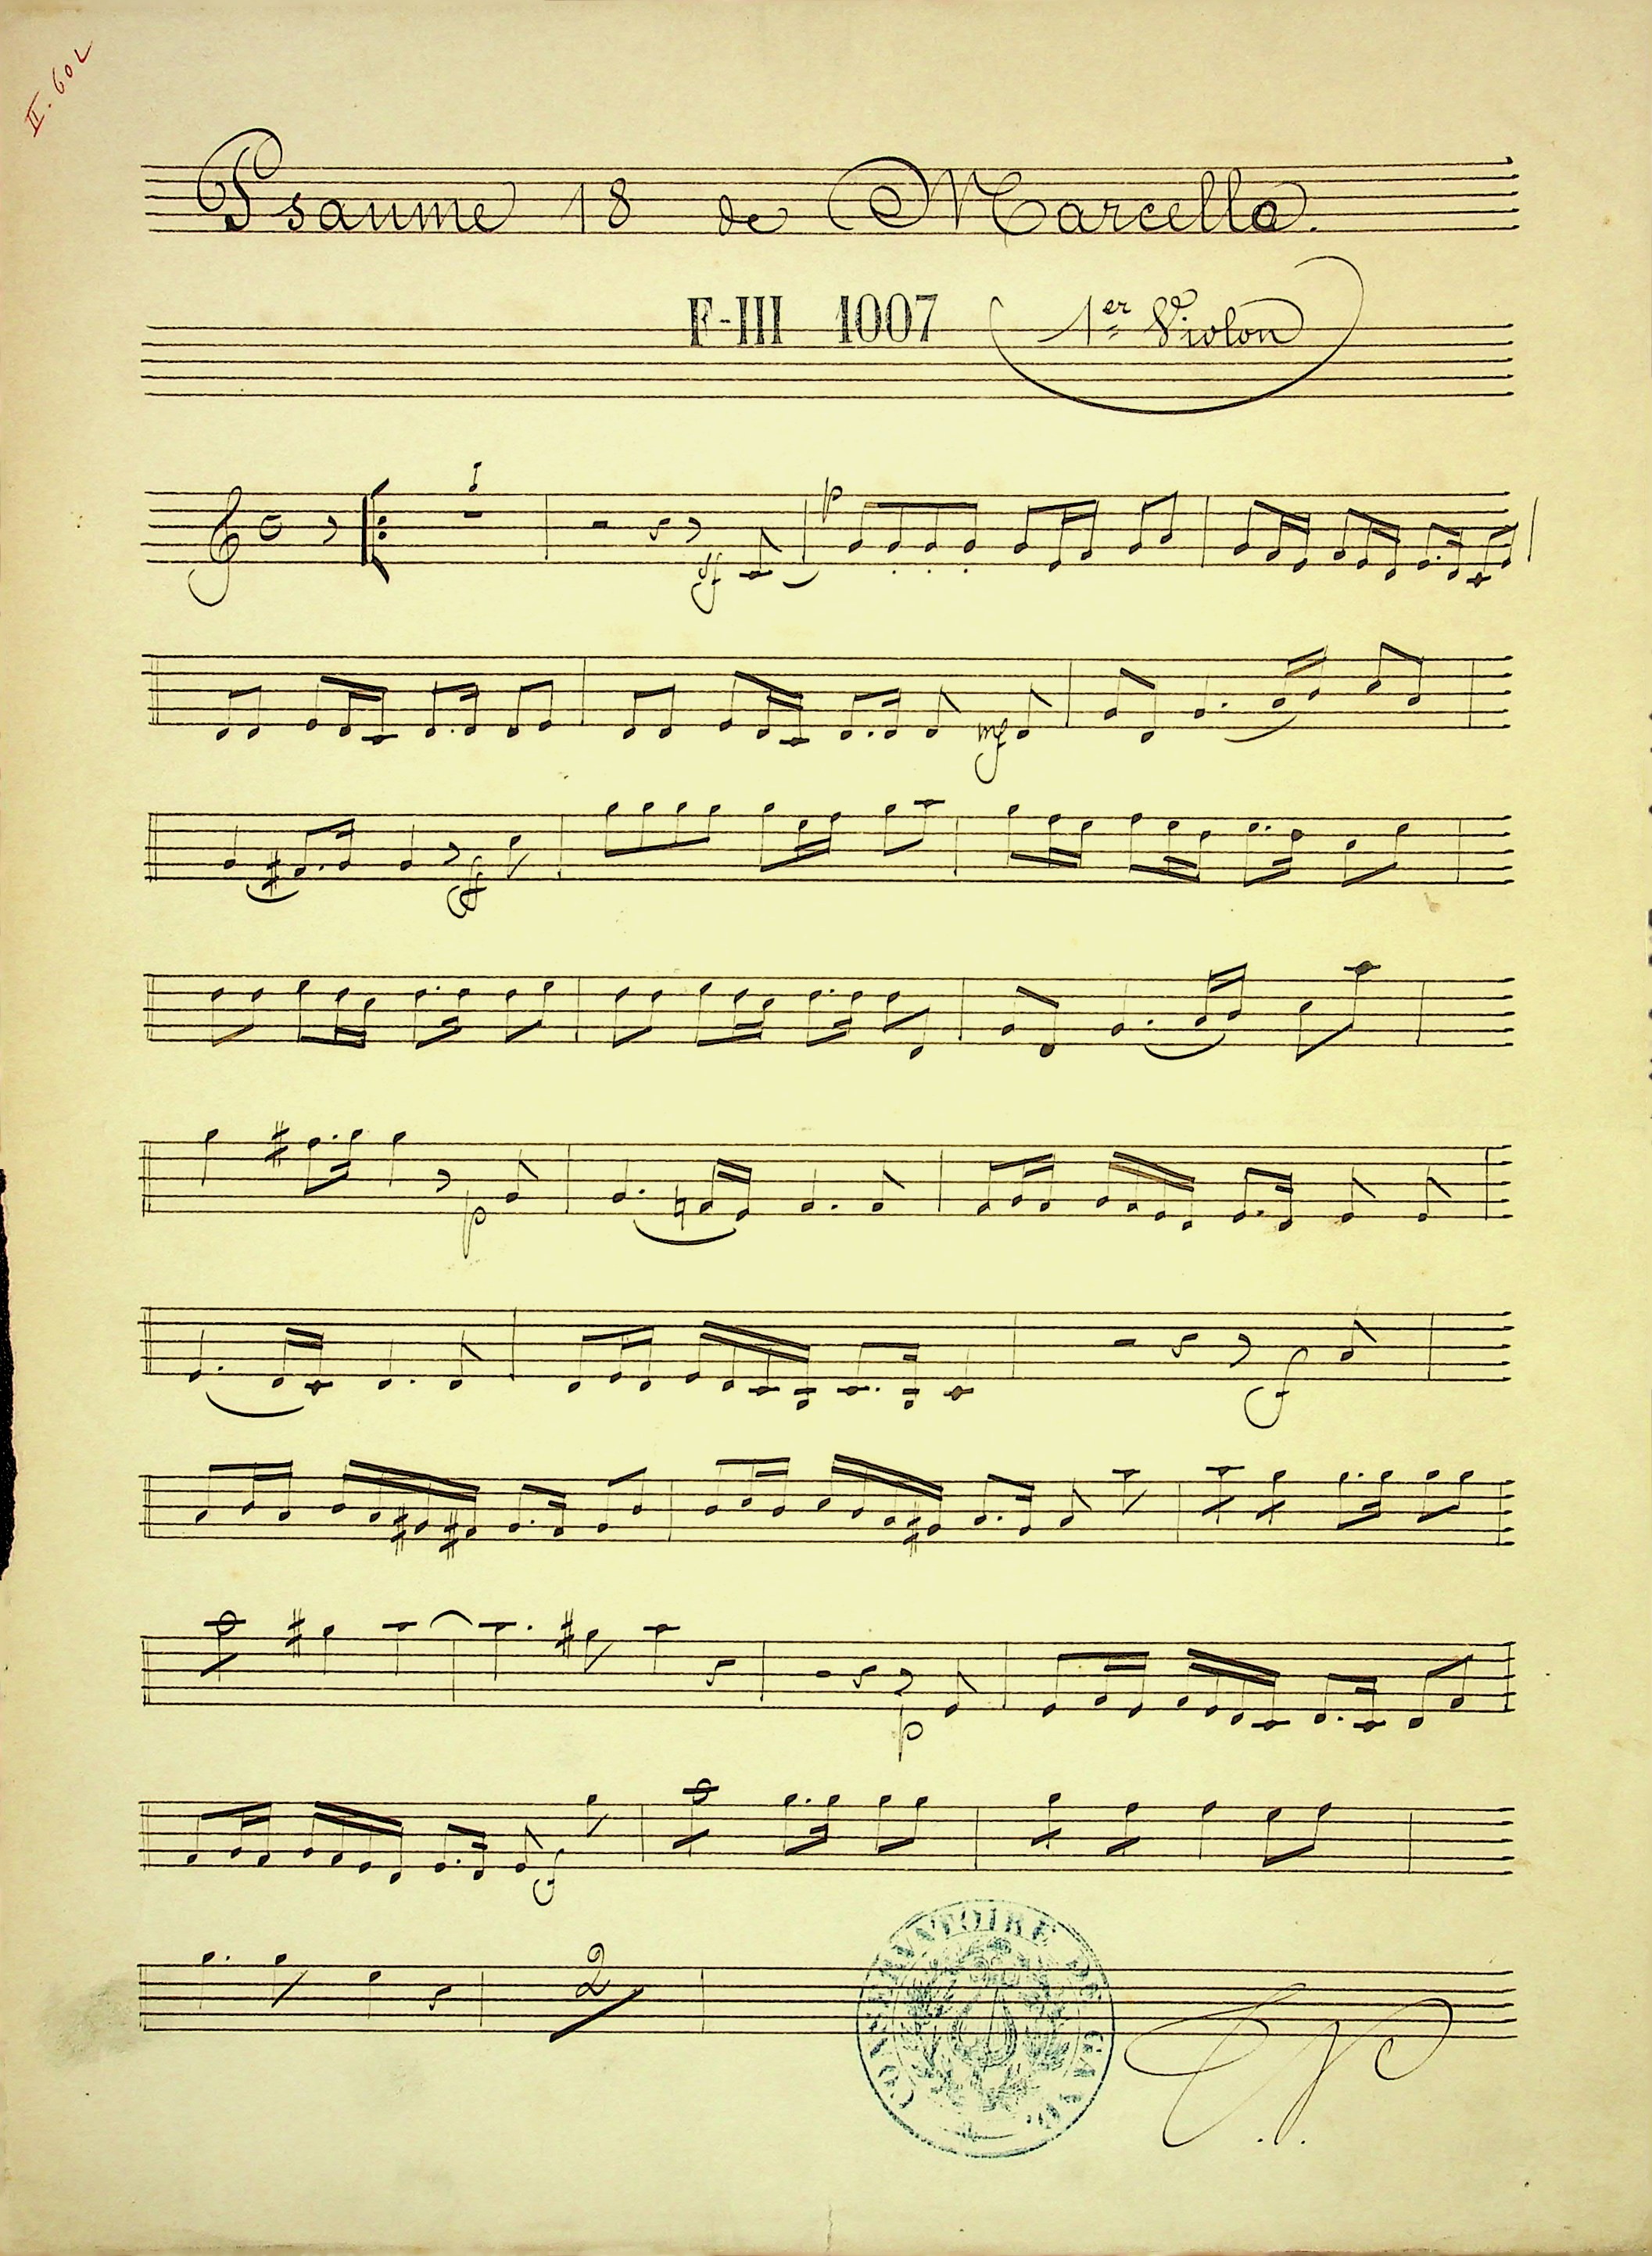 II. 602
Psaume 18 de Marcello.
F-III 1007 1er Violon
1
sf p
mf
sf
p
f
p
f
2
CONSERVATOIRE DE GAND